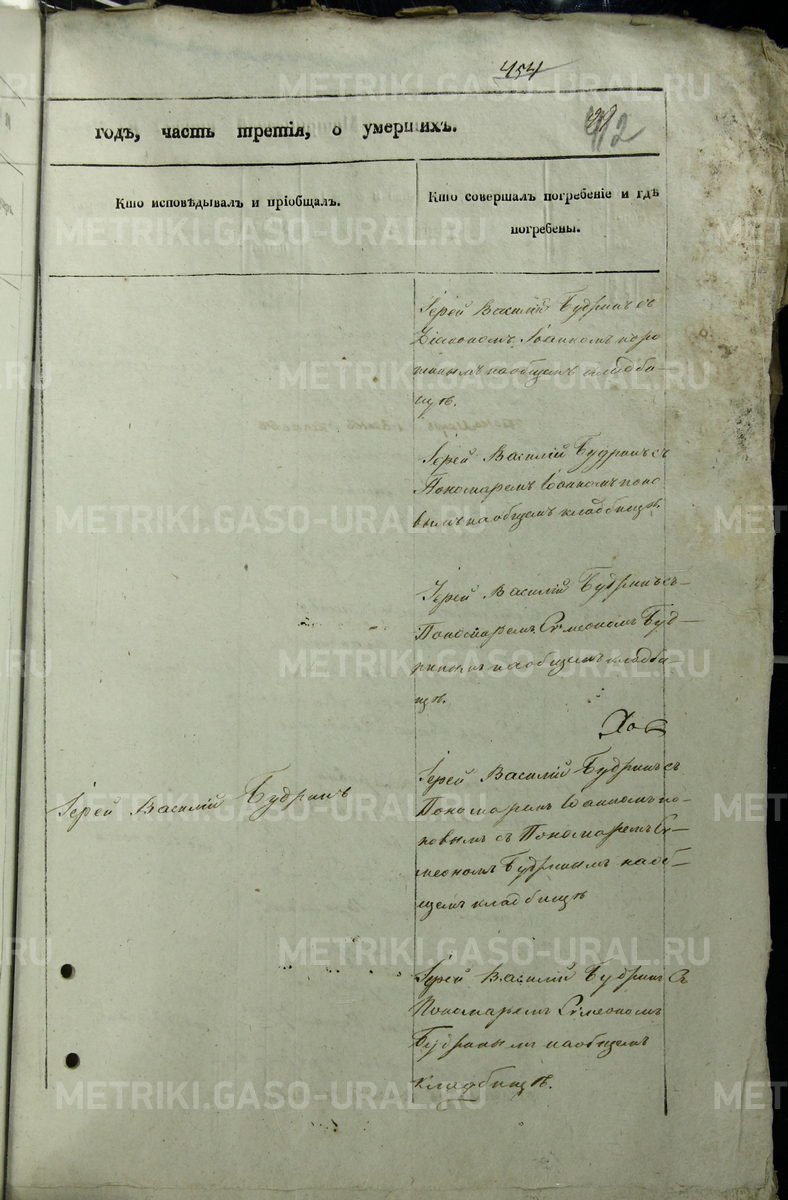 454
412
годъ, часть третія, о умершихъ.
Кто исповѣдывалъ и пріобщалъ.
Кто совершалъ погребеніе и гдѣ
погребены.
Іерей Василій Будринъ съ
Діакономъ Іоанномъ
наобщемъ кладби-
щѣ.
Іерей Василій Будринъ съ
Пономаремъ Іоанномъ Попо-
вымъ наобщемъ кладбищѣ
Іерей Василій Будринъ съ
Пономаремъ Сѵмеономъ Буд-
ринымъ наобщемъ кладби-
щѣ.
Іерей Василій Будринъ
Іерей Василій Будринъ съ
Пономаремъ Іоанномъ По-
повымъ съ Пономаремъ Сѵ-
меономъ Будринымъ наоб-
щемъ кладбищѣ
Іерей Василій Будринъ съ
Пономаремъ Сѵмеономъ
Будринымъ наобщемъ
кладбищѣ.
METRIKI.GASO-URAL.RU